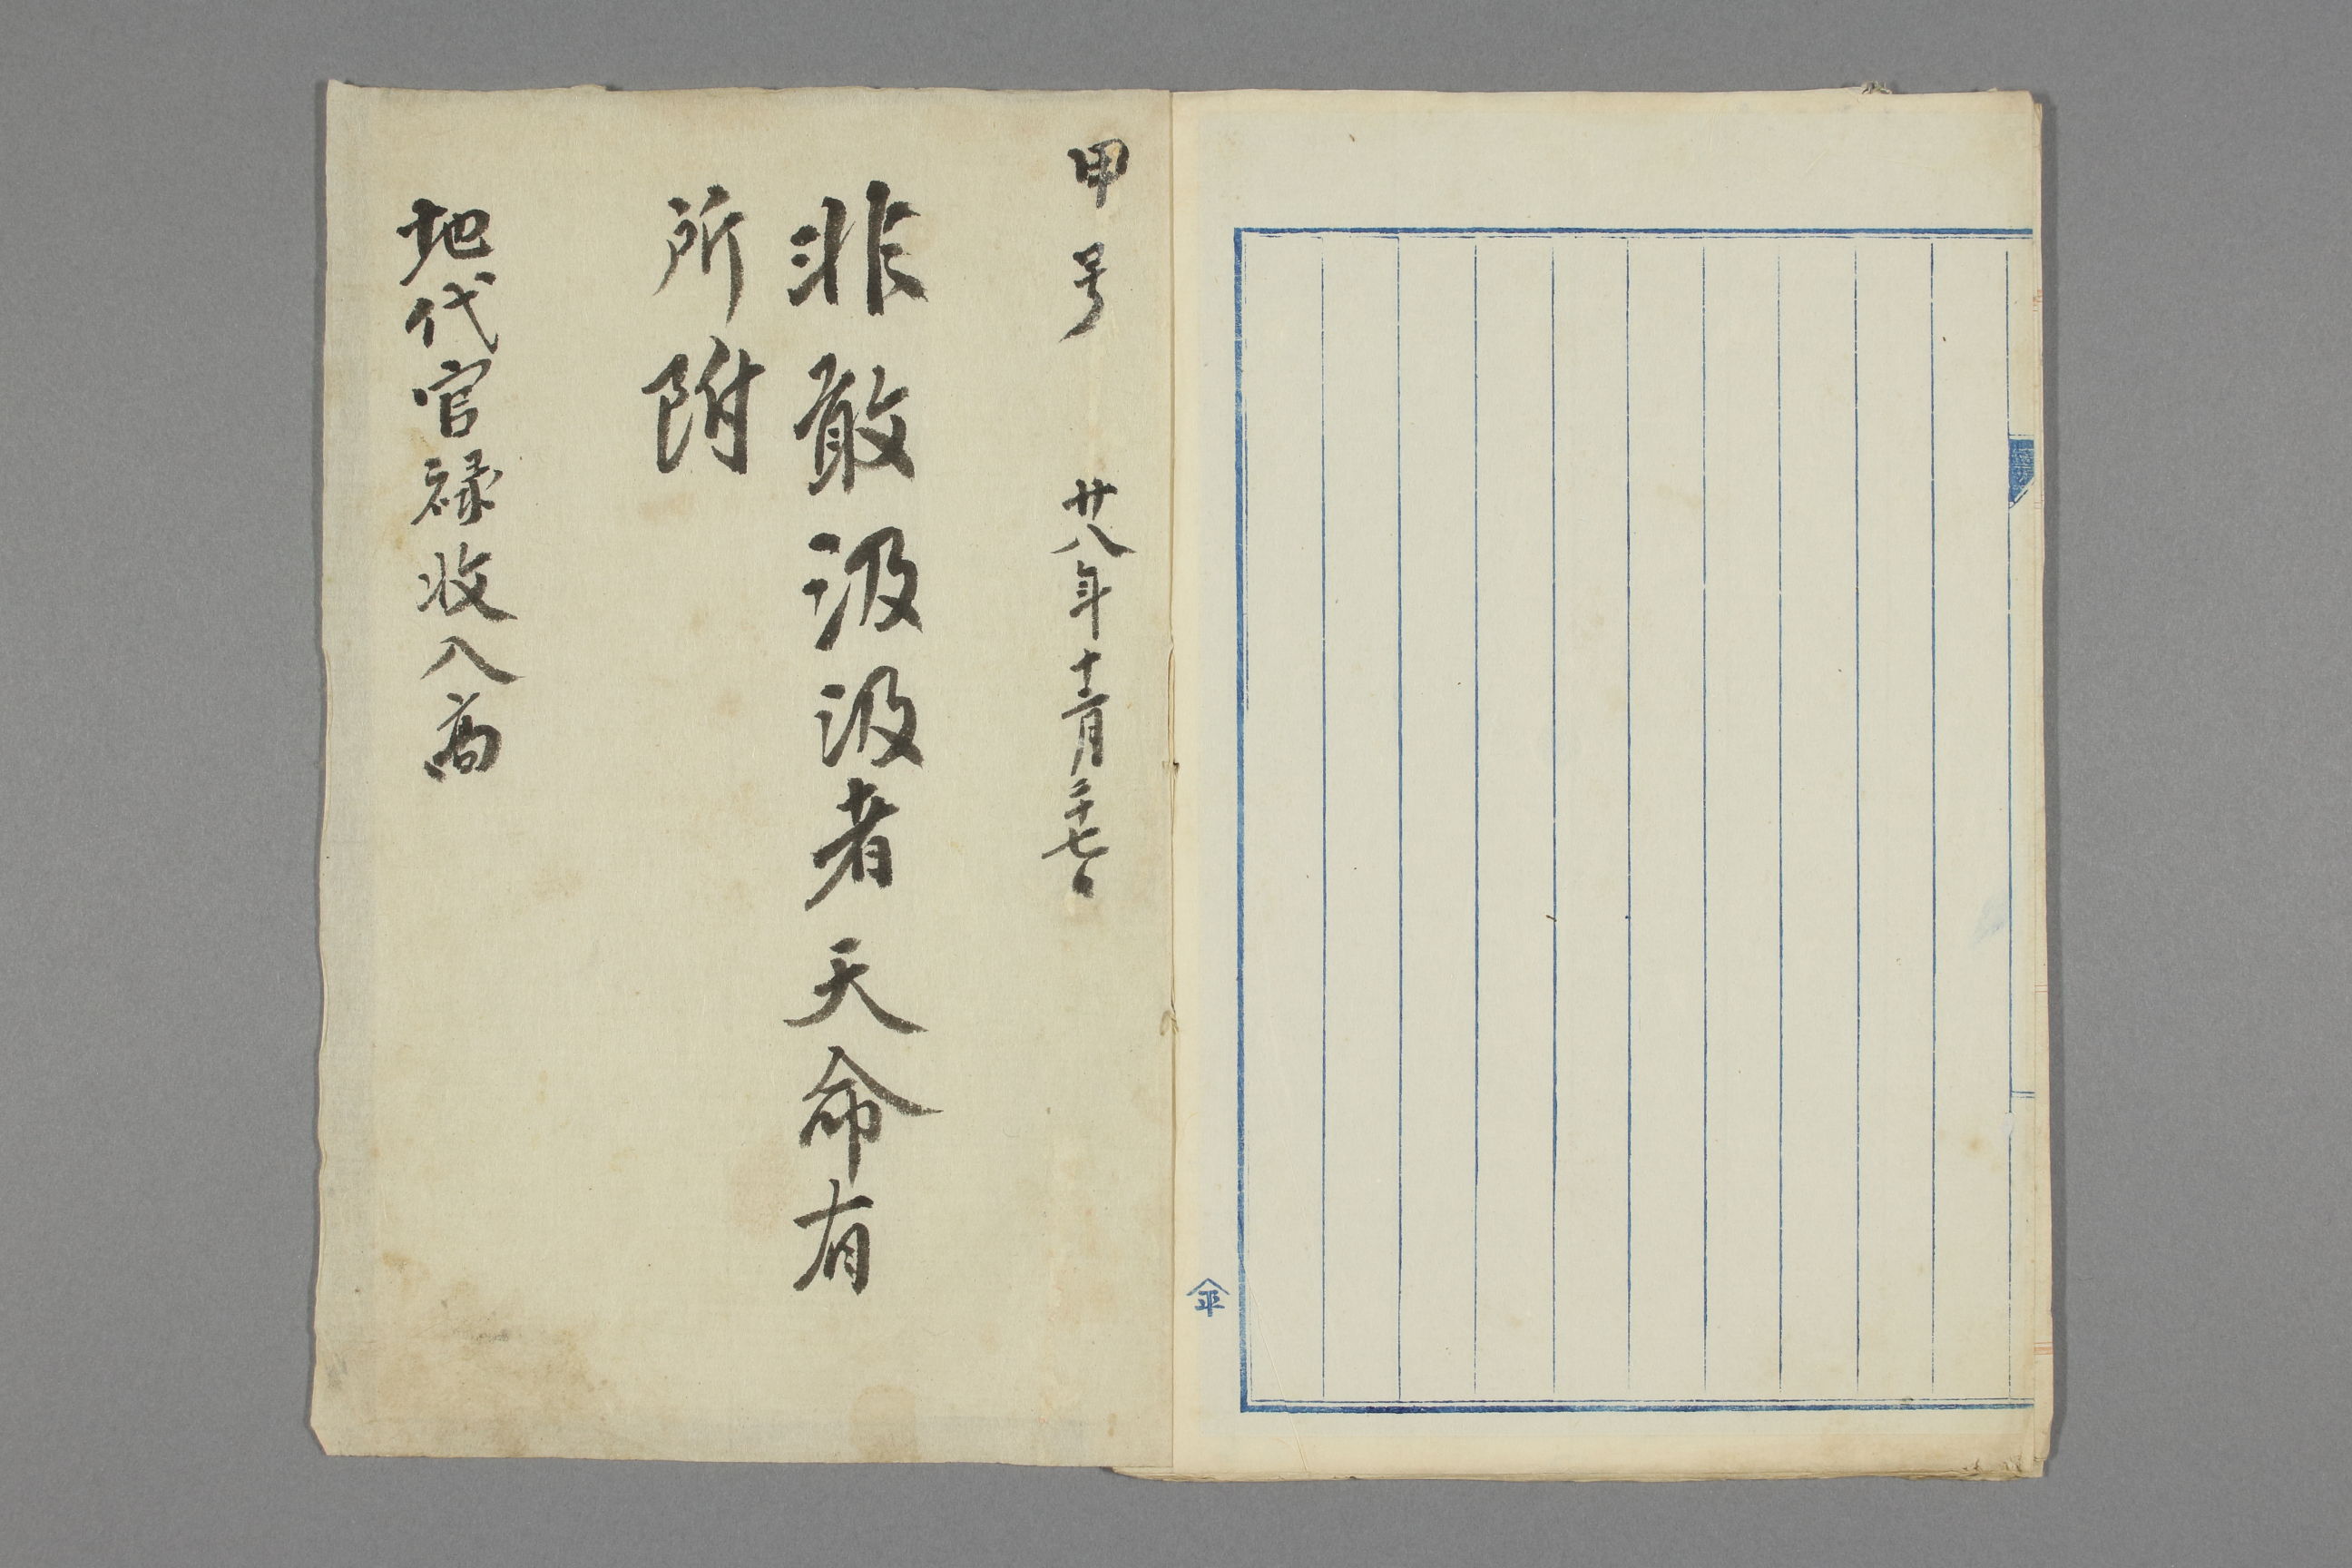 甲号 廿八年十二月二十七日
非敢汲汲者天命有
所附
地代官禄收入高